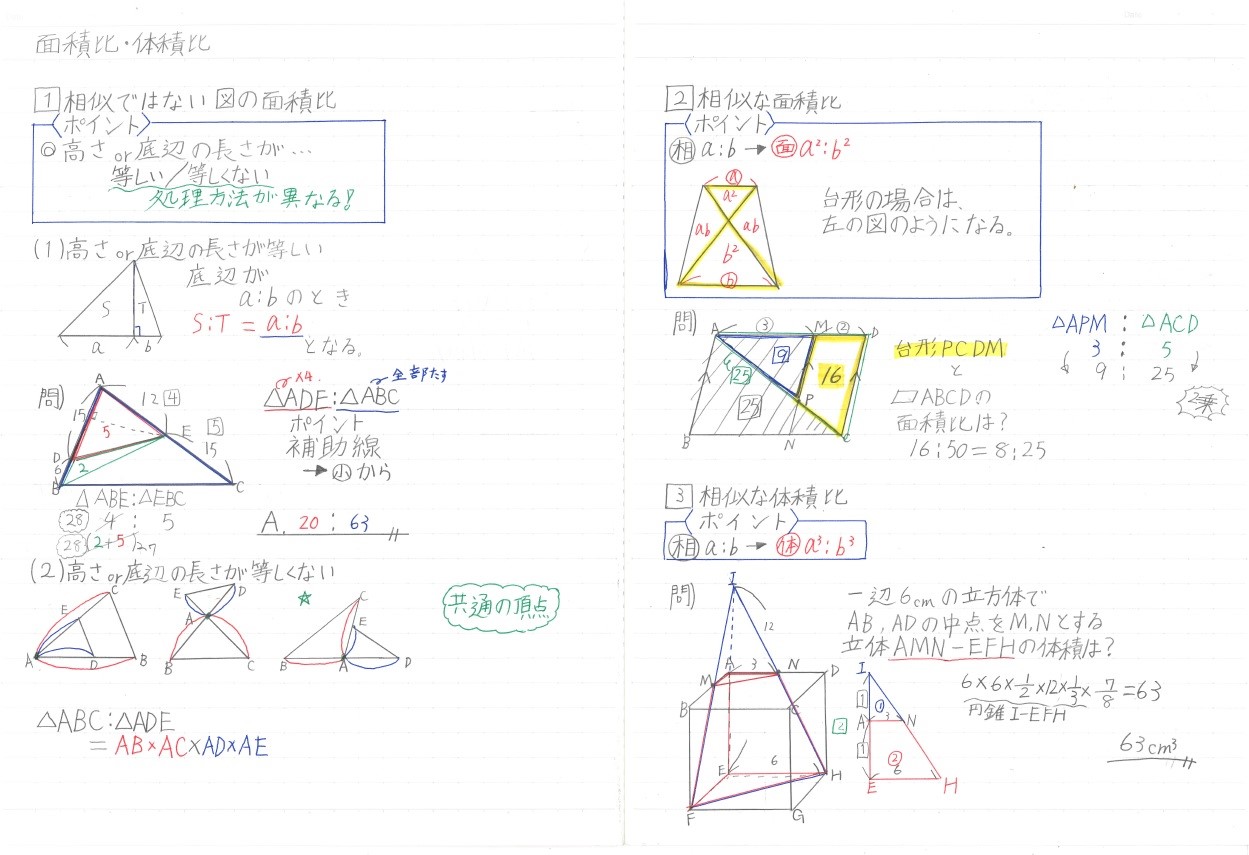 面積比・体積比
1 相似ではない図の面積比
ポイント
◎高さor底辺の長さが…
等しい/等しくない
処理方法が異なる!
(1)高さor底辺の長さが等しい
底辺が
a:bのとき
S:T = a:b
となる。
S
T
a
b
問)
A
12 4
15
5
E
5
15
D
6
2
B
C
×4
全部たす
△ADE:△ABC
ポイント
補助線
→小から
△ABE:△EBC
28 4 : 5
28(2+5)
27
A. 20 : 63
(2)高さor底辺の長さが等しくない
☆
共通の頂点
A
B
C
D
E
E
D
A
B
C
C
E
B
A
D
△ABC:△ADE
= AB×AC×AD×AE
2 相似な面積比
ポイント
相 a:b → 面 a²:b²
a
a²
ab
ab
b²
b
台形の場合は、
左の図のようになる。
問)
A
3
M
2
D
9
25
16
25
P
B
N
C
台形PCDM
と
▱ABCDの
面積比は?
16:50=8:25
△APM : △ACD
3 : 5
9 : 25
2乗
3 相似な体積比
ポイント
相 a:b → 体 a³:b³
問)
I
12
A
3
N
D
M
B
C
2
E
6
H
F
G
一辺6cmの立方体で
AB,ADの中点をM,Nとする
立体AMN-EFHの体積は?
6×6×1/2×12×1/3×7/8=63
円錐I-EFH
I
1
①
A
3
N
1
②
6
E
H
63cm³